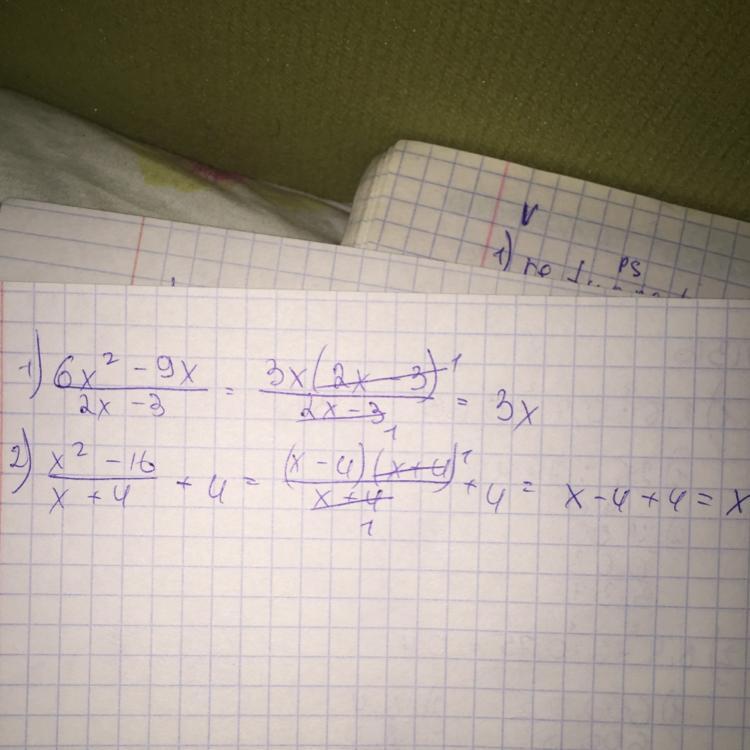 V
1) по
1) \frac{6x² - 9x}{2x - 3} = \frac{3x(2x - 3)¹}{2x - 3 ₁} = 3x
2) \frac{x² - 16}{x + 4} + 4 = \frac{(x - 4)(x + 4)¹}{x + 4 ₁} + 4 = x - 4 + 4 = x